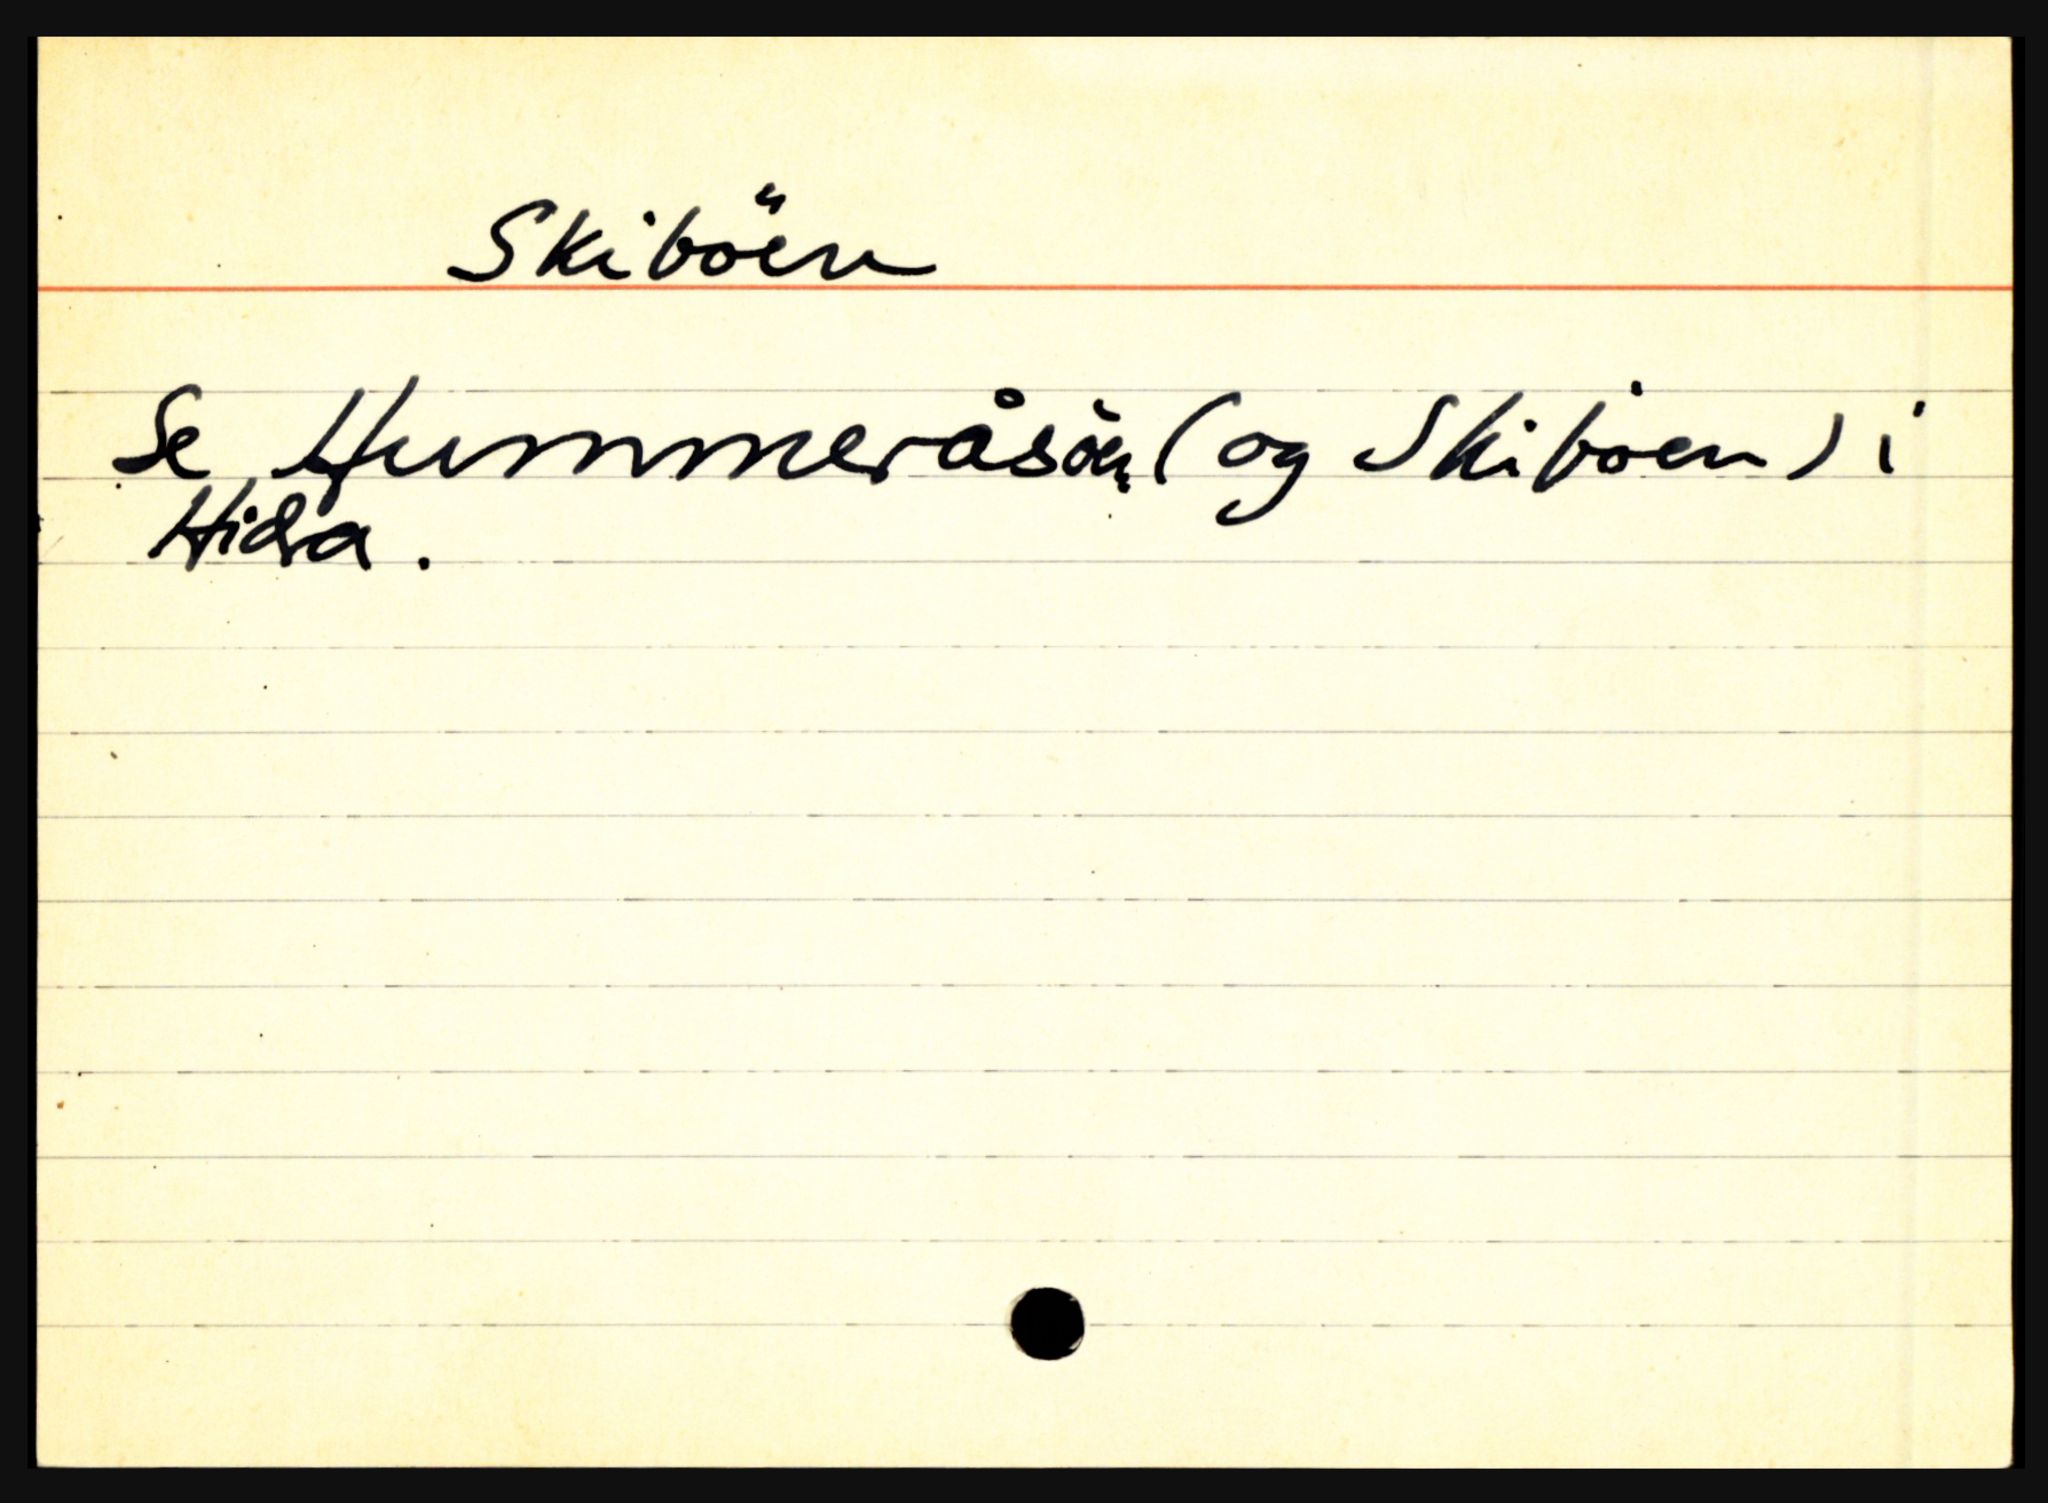 Skiböen
Se Hummeråsöen (og Skiböen) i
Hidra.